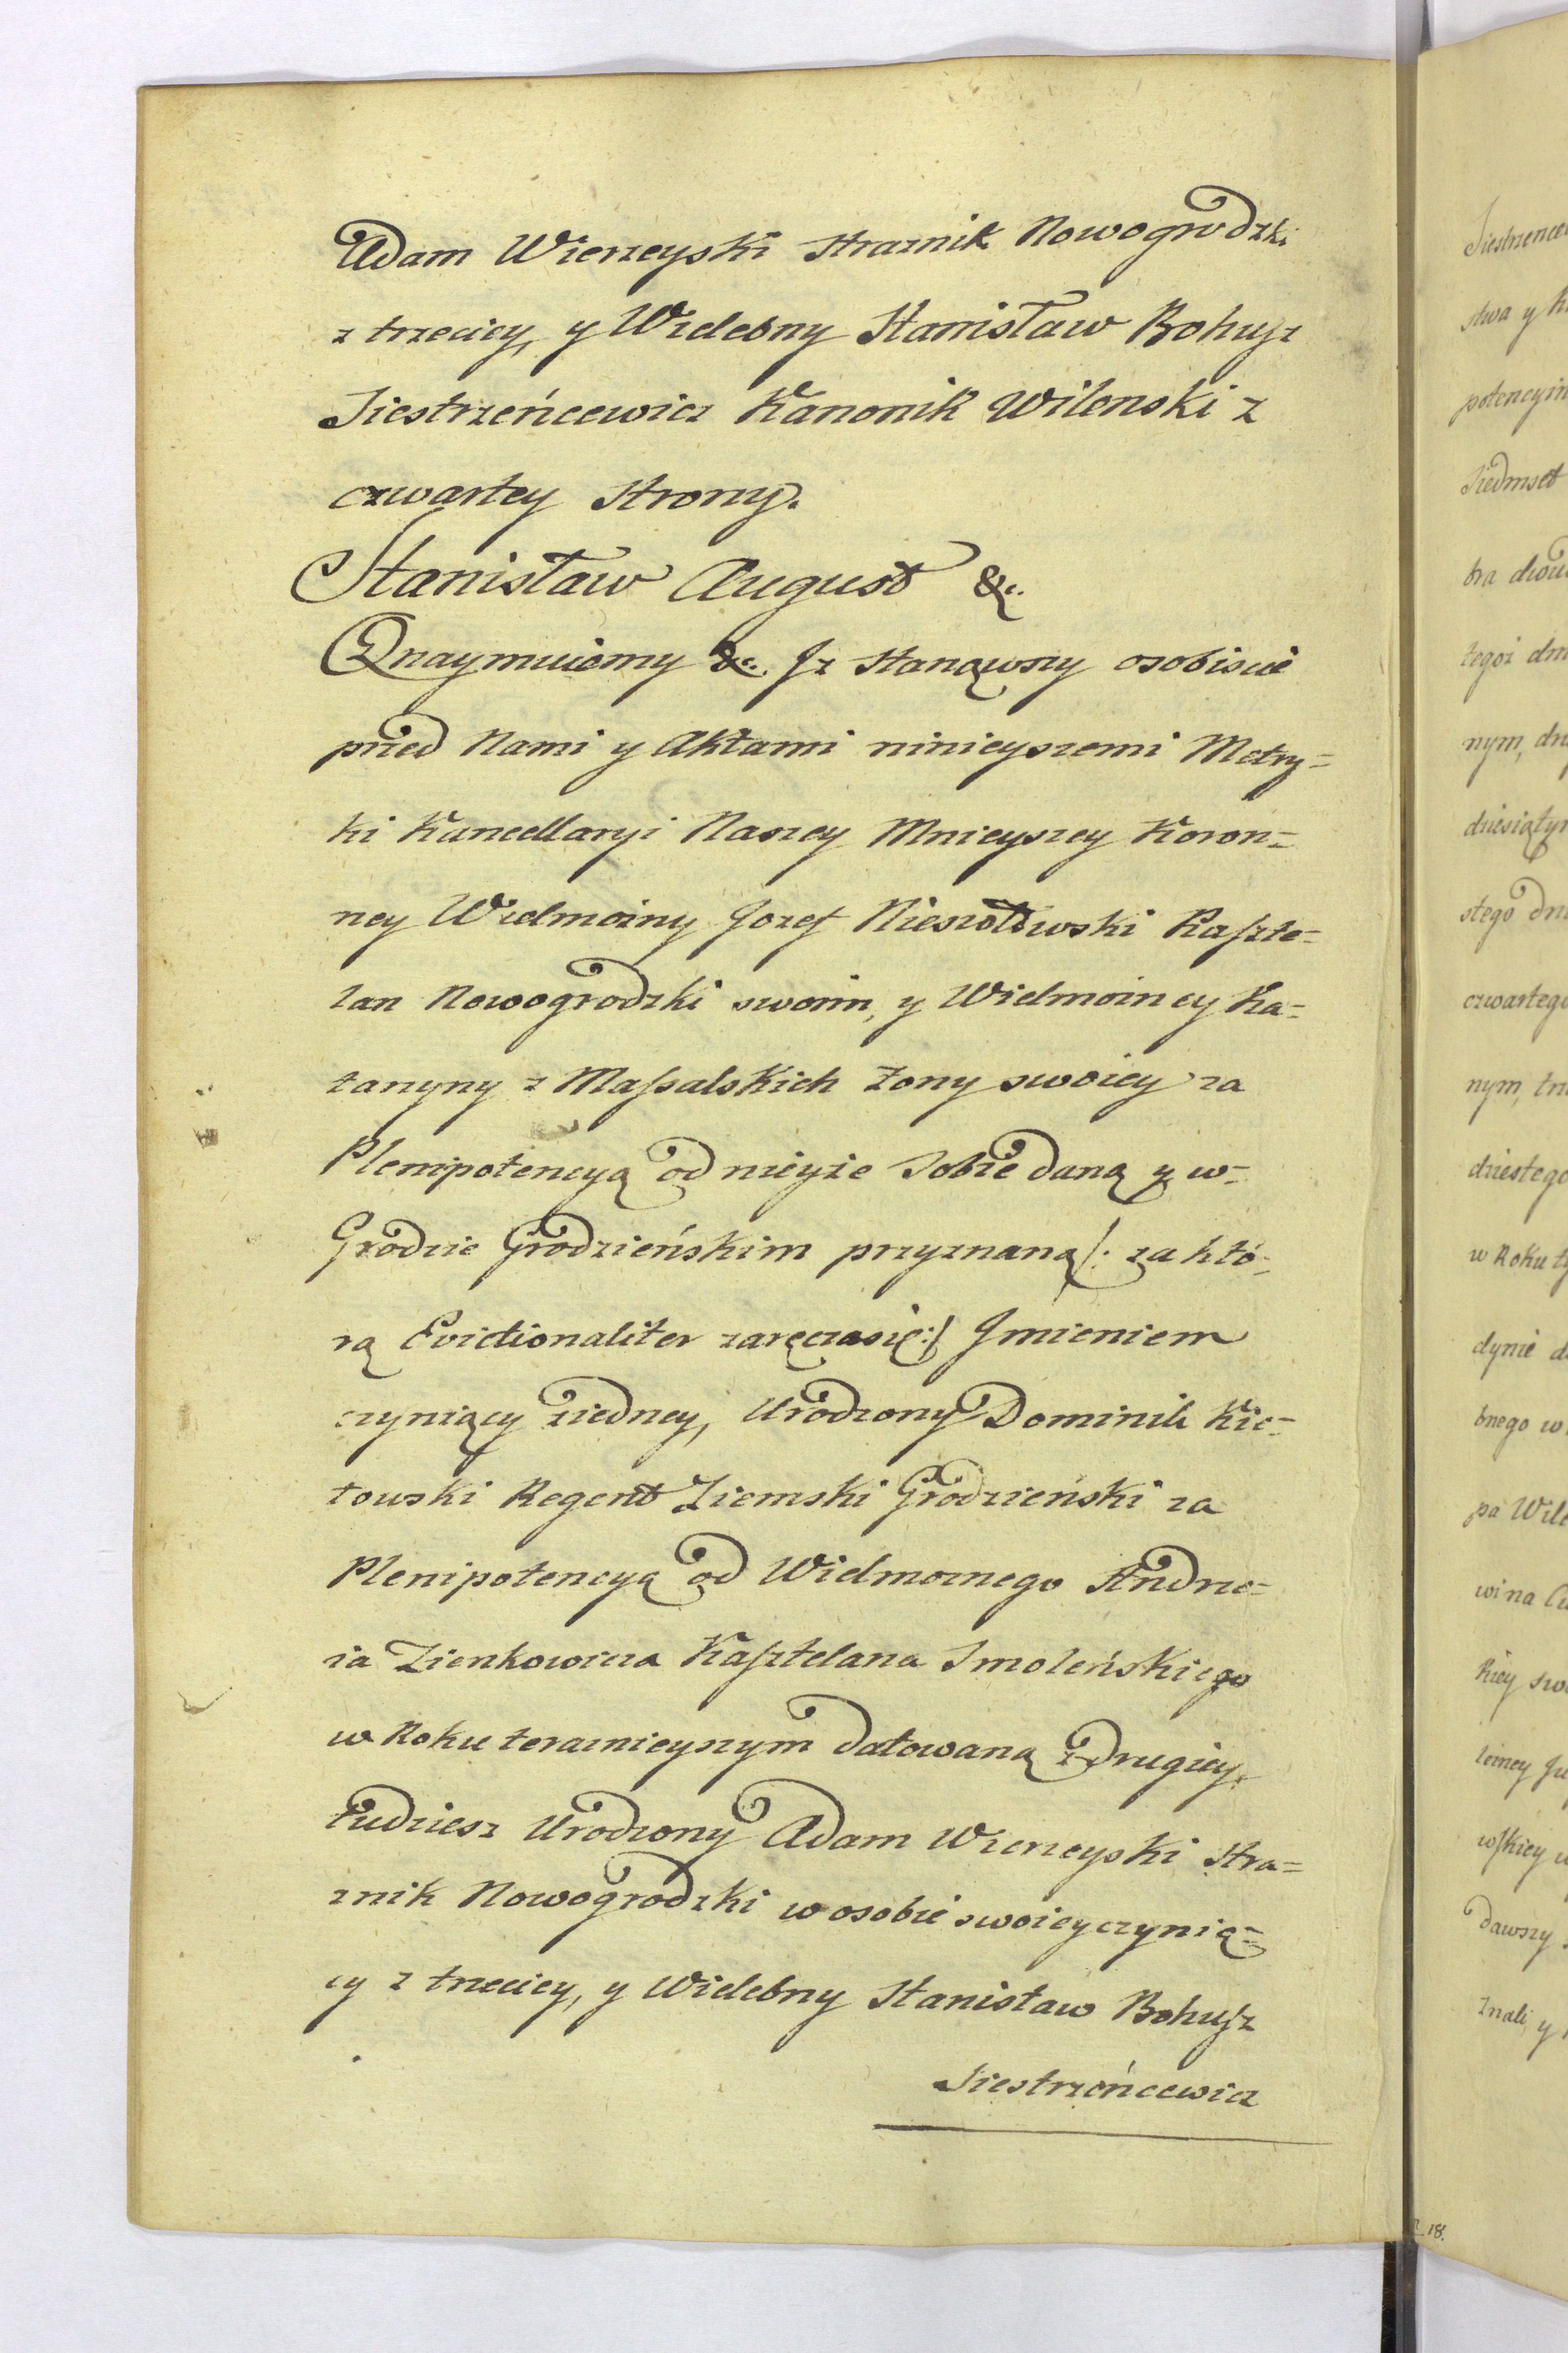 Adam Wierzeyski Straznik Nowogrodzki
z trzeciey, y Wielebny Stanisław Bohusz
Siestrzeńcewicz Kanonik Wilenski z
czwartey Strony.
Stanisław August &c.
Oznaymuiemy &c. Jz stanąwszy osobiscie
przed Nami y Aktami ninieyszemi Metry=
ki Kancellaryi Naszey Mnieyszey Koron=
ney Wielmożny Jozef Niesiołowski Kaszte=
lan Nowogrodzki swoim, y Wielmożney Ka=
tarzyny z Massalskich Zony swoiey za
Plenipotencyą od nieyże Sobie daną y w=
Grodzie Grodzieńskim przyznaną /: za któ=
rą Evictionaliter zaręcza się :/ Jmieniem
czyniący ziedney, Urodzony Dominik Kie=
towski Regent Ziemski Grodzieński za
Plenipotencyą od Wielmoznego Andrze=
ia Zienkowicza Kasztelana Smoleńskiego
w Roku teraznieyszym datowaną z Drugiey,
tudziesz Urodzony Adam Wierzeyski Stra=
znik Nowogrodzki w osobie swoiey czynią=
cy z trzeciey, y Wielebny Stanisław Bohusz
Siestrzeńcewicz
Siestrzence
stwa y
potencyi
Siedmset
tegoż
nym,
stego
czwartego
nym,
dziestego
w Roku
bnego w
pa
kiey
dawszy
znali y
18.